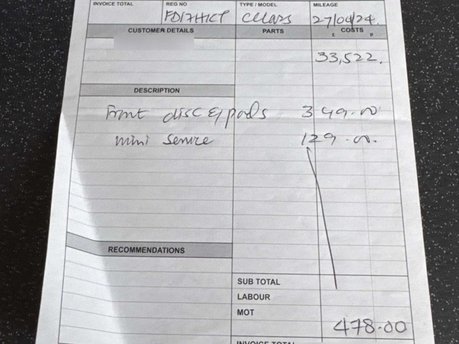 INVOICE TOTAL REG NO TYPE / MODEL MILEAGE
27/04/24.
CUSTOMER DETAILS PARTS £ COSTS P
33,522.
DESCRIPTION
Front disc & pads 349.00
mini service 129.00.
RECOMMENDATIONS
SUB TOTAL
LABOUR
MOT
478.00
INVOICE TOTAL